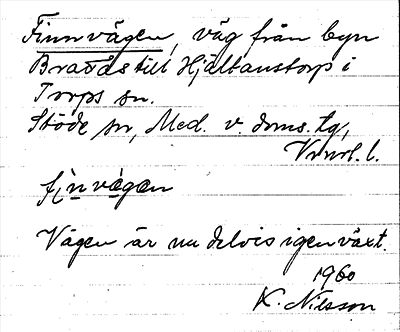 Finnvägen, väg från byn
Bräåds till Hjältanstorp i
Torps sn.
Stöde sn, Med. v. doms. tg,
Vnorl. l.
finvägen
Vägen är nu delvis igenväxt.
1960
K. Nilsson